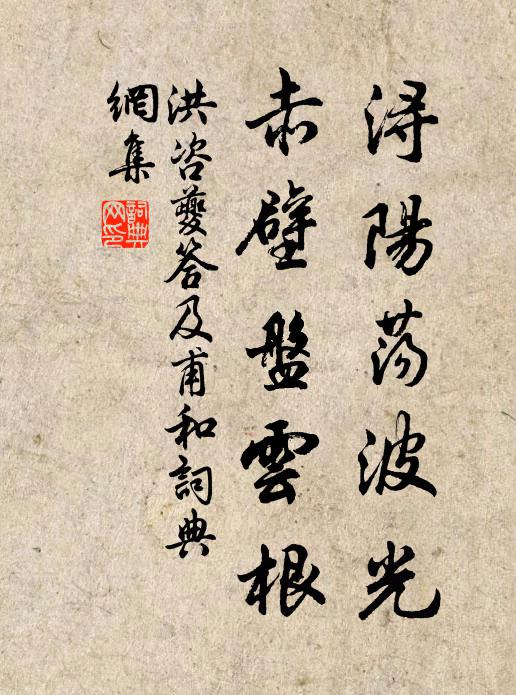 浔陽荡波光
赤壁盤雲根
洪咨夔答及甫和詞典
網集
詞典網印